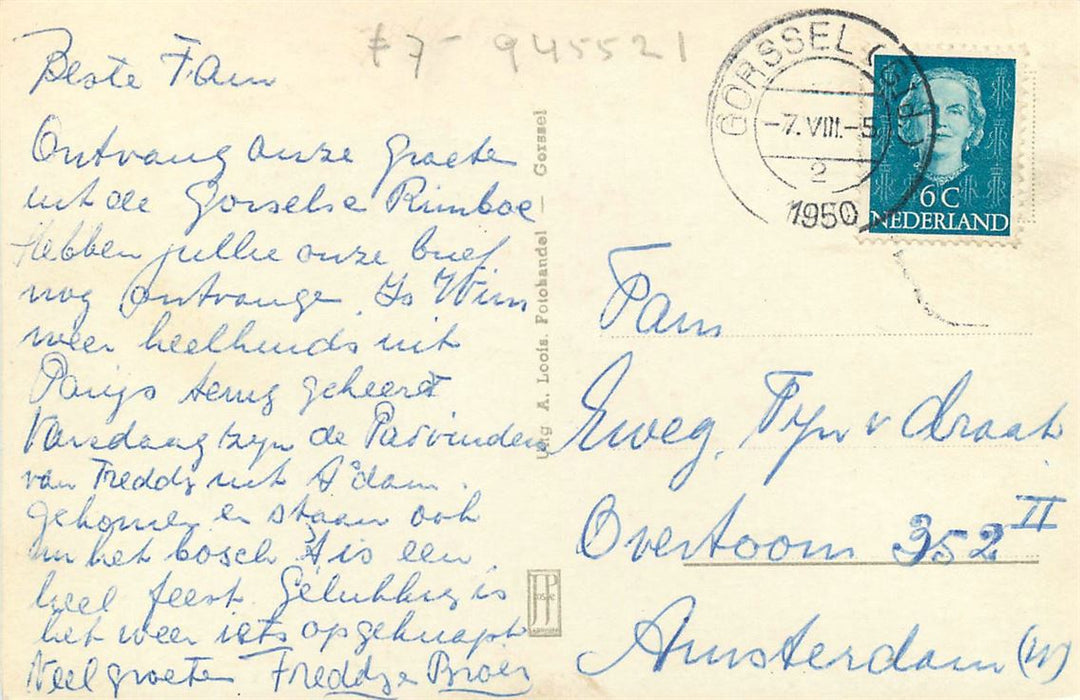 f 7- 945521
Beste Fam
Ontvang onze groete
uit de Gorselse Rimboe
Hebben jullie onze brief
nog ontvange. Is Wim
weer heelhuids uit
Parijs terug gekeerd
Vandaag zijn de Padvinders
van Freddy uit A'dam.
gekomen en staan ook
in het bosch 't is een
heel feest. Gelukkig is
het weer iets opgeknapt
Veel groeten Freddy Broer
Uitg A. Loois. Fotohandel — Gorssel
JP
GORSSEL (GLD)
-7.VIII.-5
2
1950
6C
NEDERLAND
Fam
Eweg, Fijn v Draat
Overtoom 352 II
Amsterdam (W)